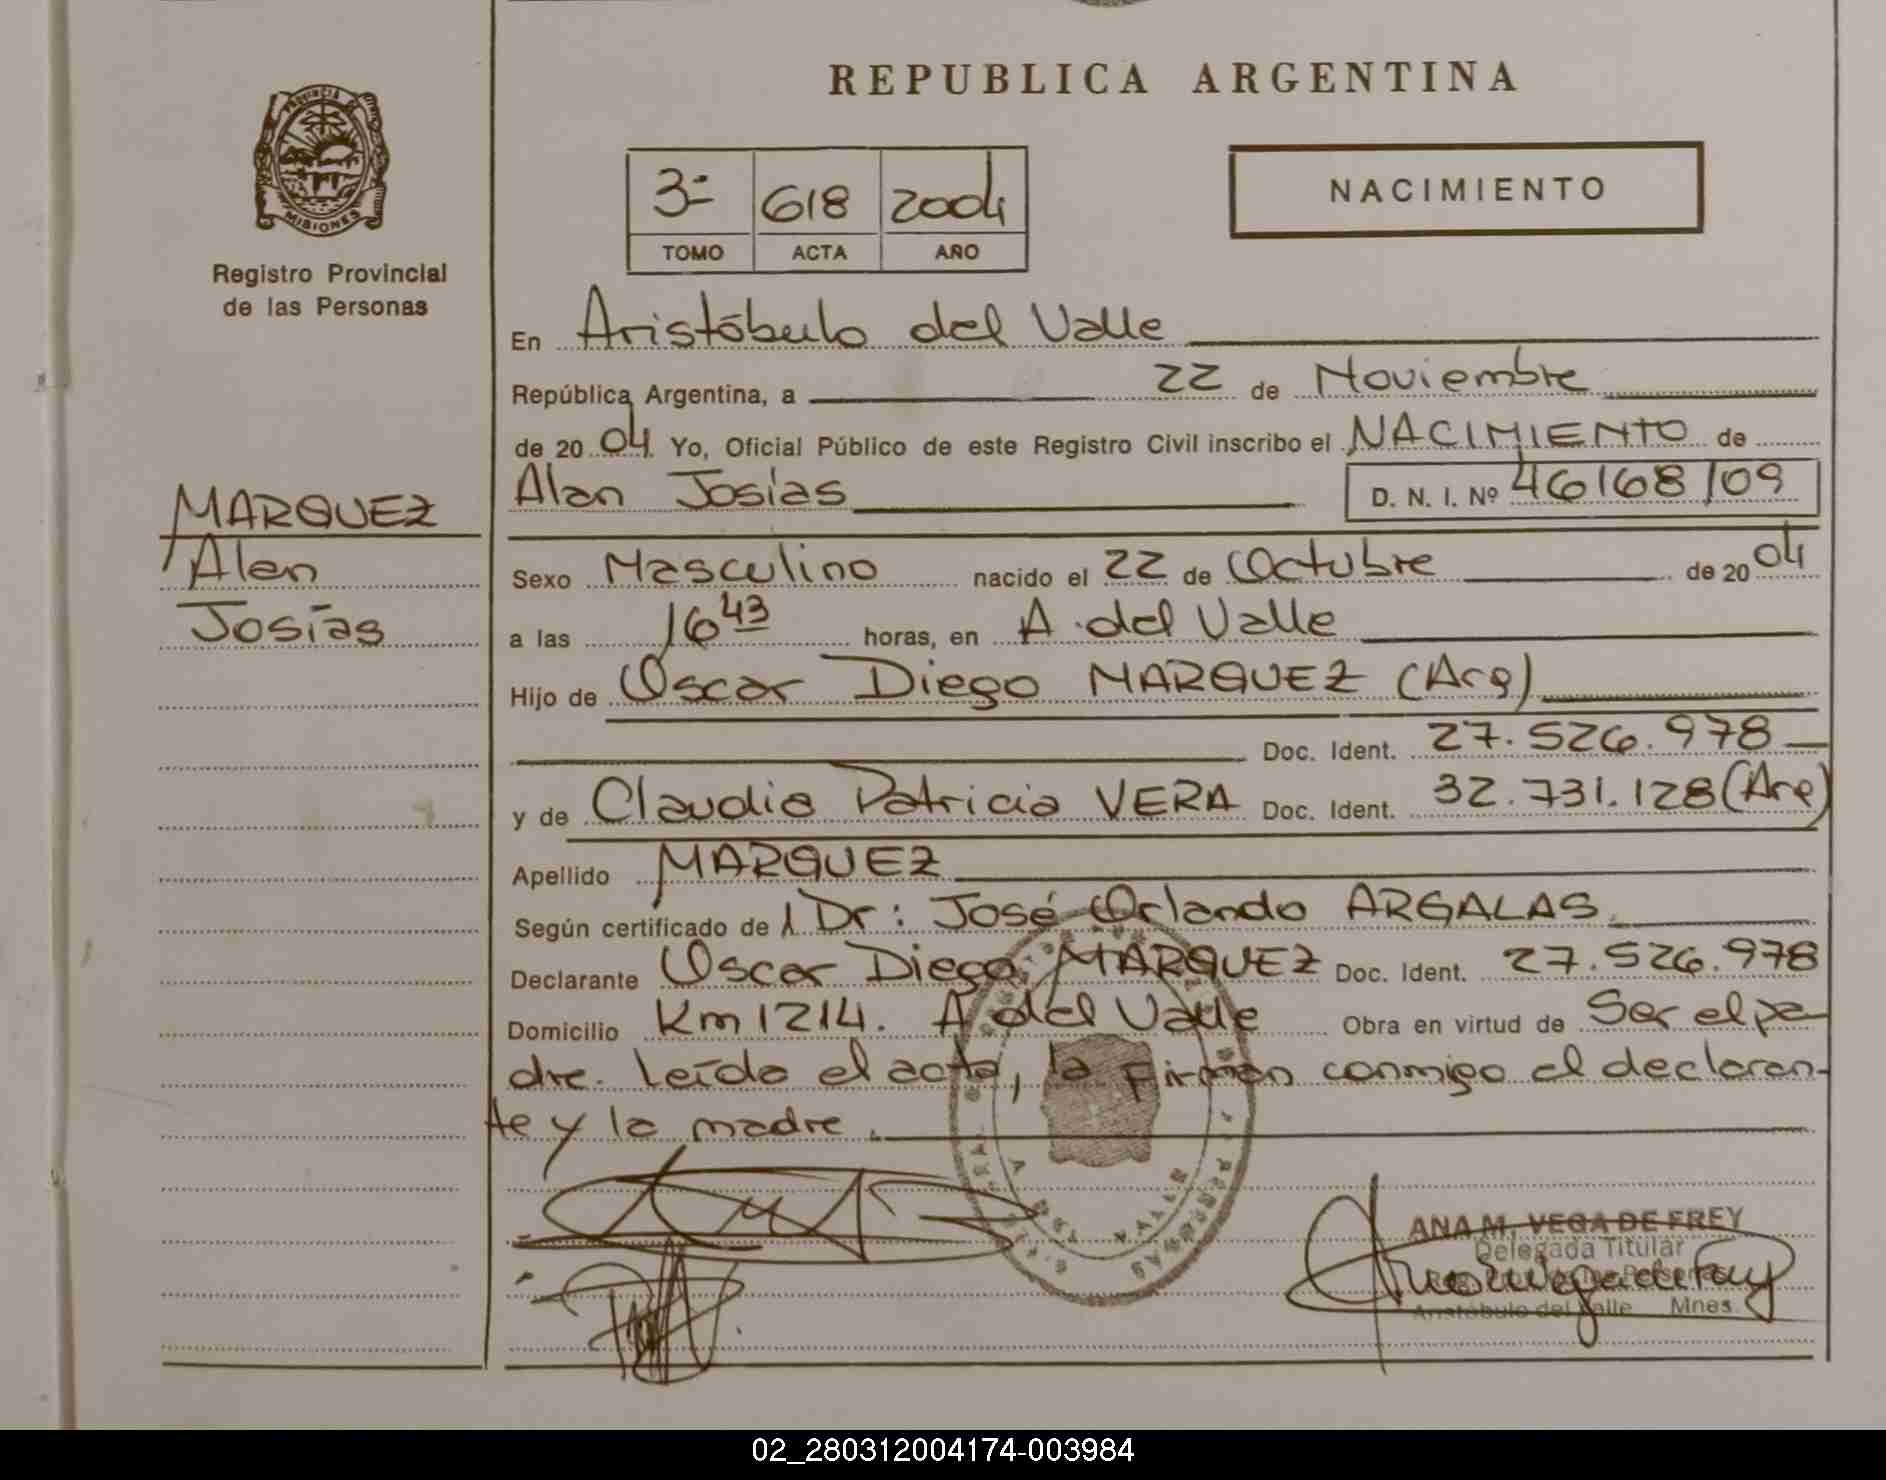 REPUBLICA ARGENTINA
PROVINCIA DE
MISIONES
Registro Provincial
de las Personas
3=
618
2004
TOMO
ACTA
AÑO
NACIMIENTO
En Aristóbulo del Valle
República Argentina, a 22 de Noviembre
de 20 04 Yo, Oficial Público de este Registro Civil inscribo el NACIMIENTO de
Alan Josías
D. N. I. Nº 46168109
MARQUEZ
Alan
Josías
Sexo Masculino nacido el 22 de Octubre de 20 04
a las 16 43 horas, en A. del Valle
Hijo de Oscar Diego MARQUEZ (Arg)
Doc. Ident. 27.526.978
y de Claudia Patricia VERA Doc. Ident. 32.731.128 (Arg)
Apellido MARQUEZ
Según certificado de l Dr: José Orlando ARGALAS
Declarante Oscar Diego MARQUEZ Doc. Ident. 27.526.978
Domicilio Km 1214. A del Valle Obra en virtud de Ser el pa
dre. Leída el acta, la firman conmigo el declaran-
te y la madre.
ANA M. VEGA DE FREY
Delegada Titular
Aristóbulo del Valle Mnes.
02_280312004174-003984